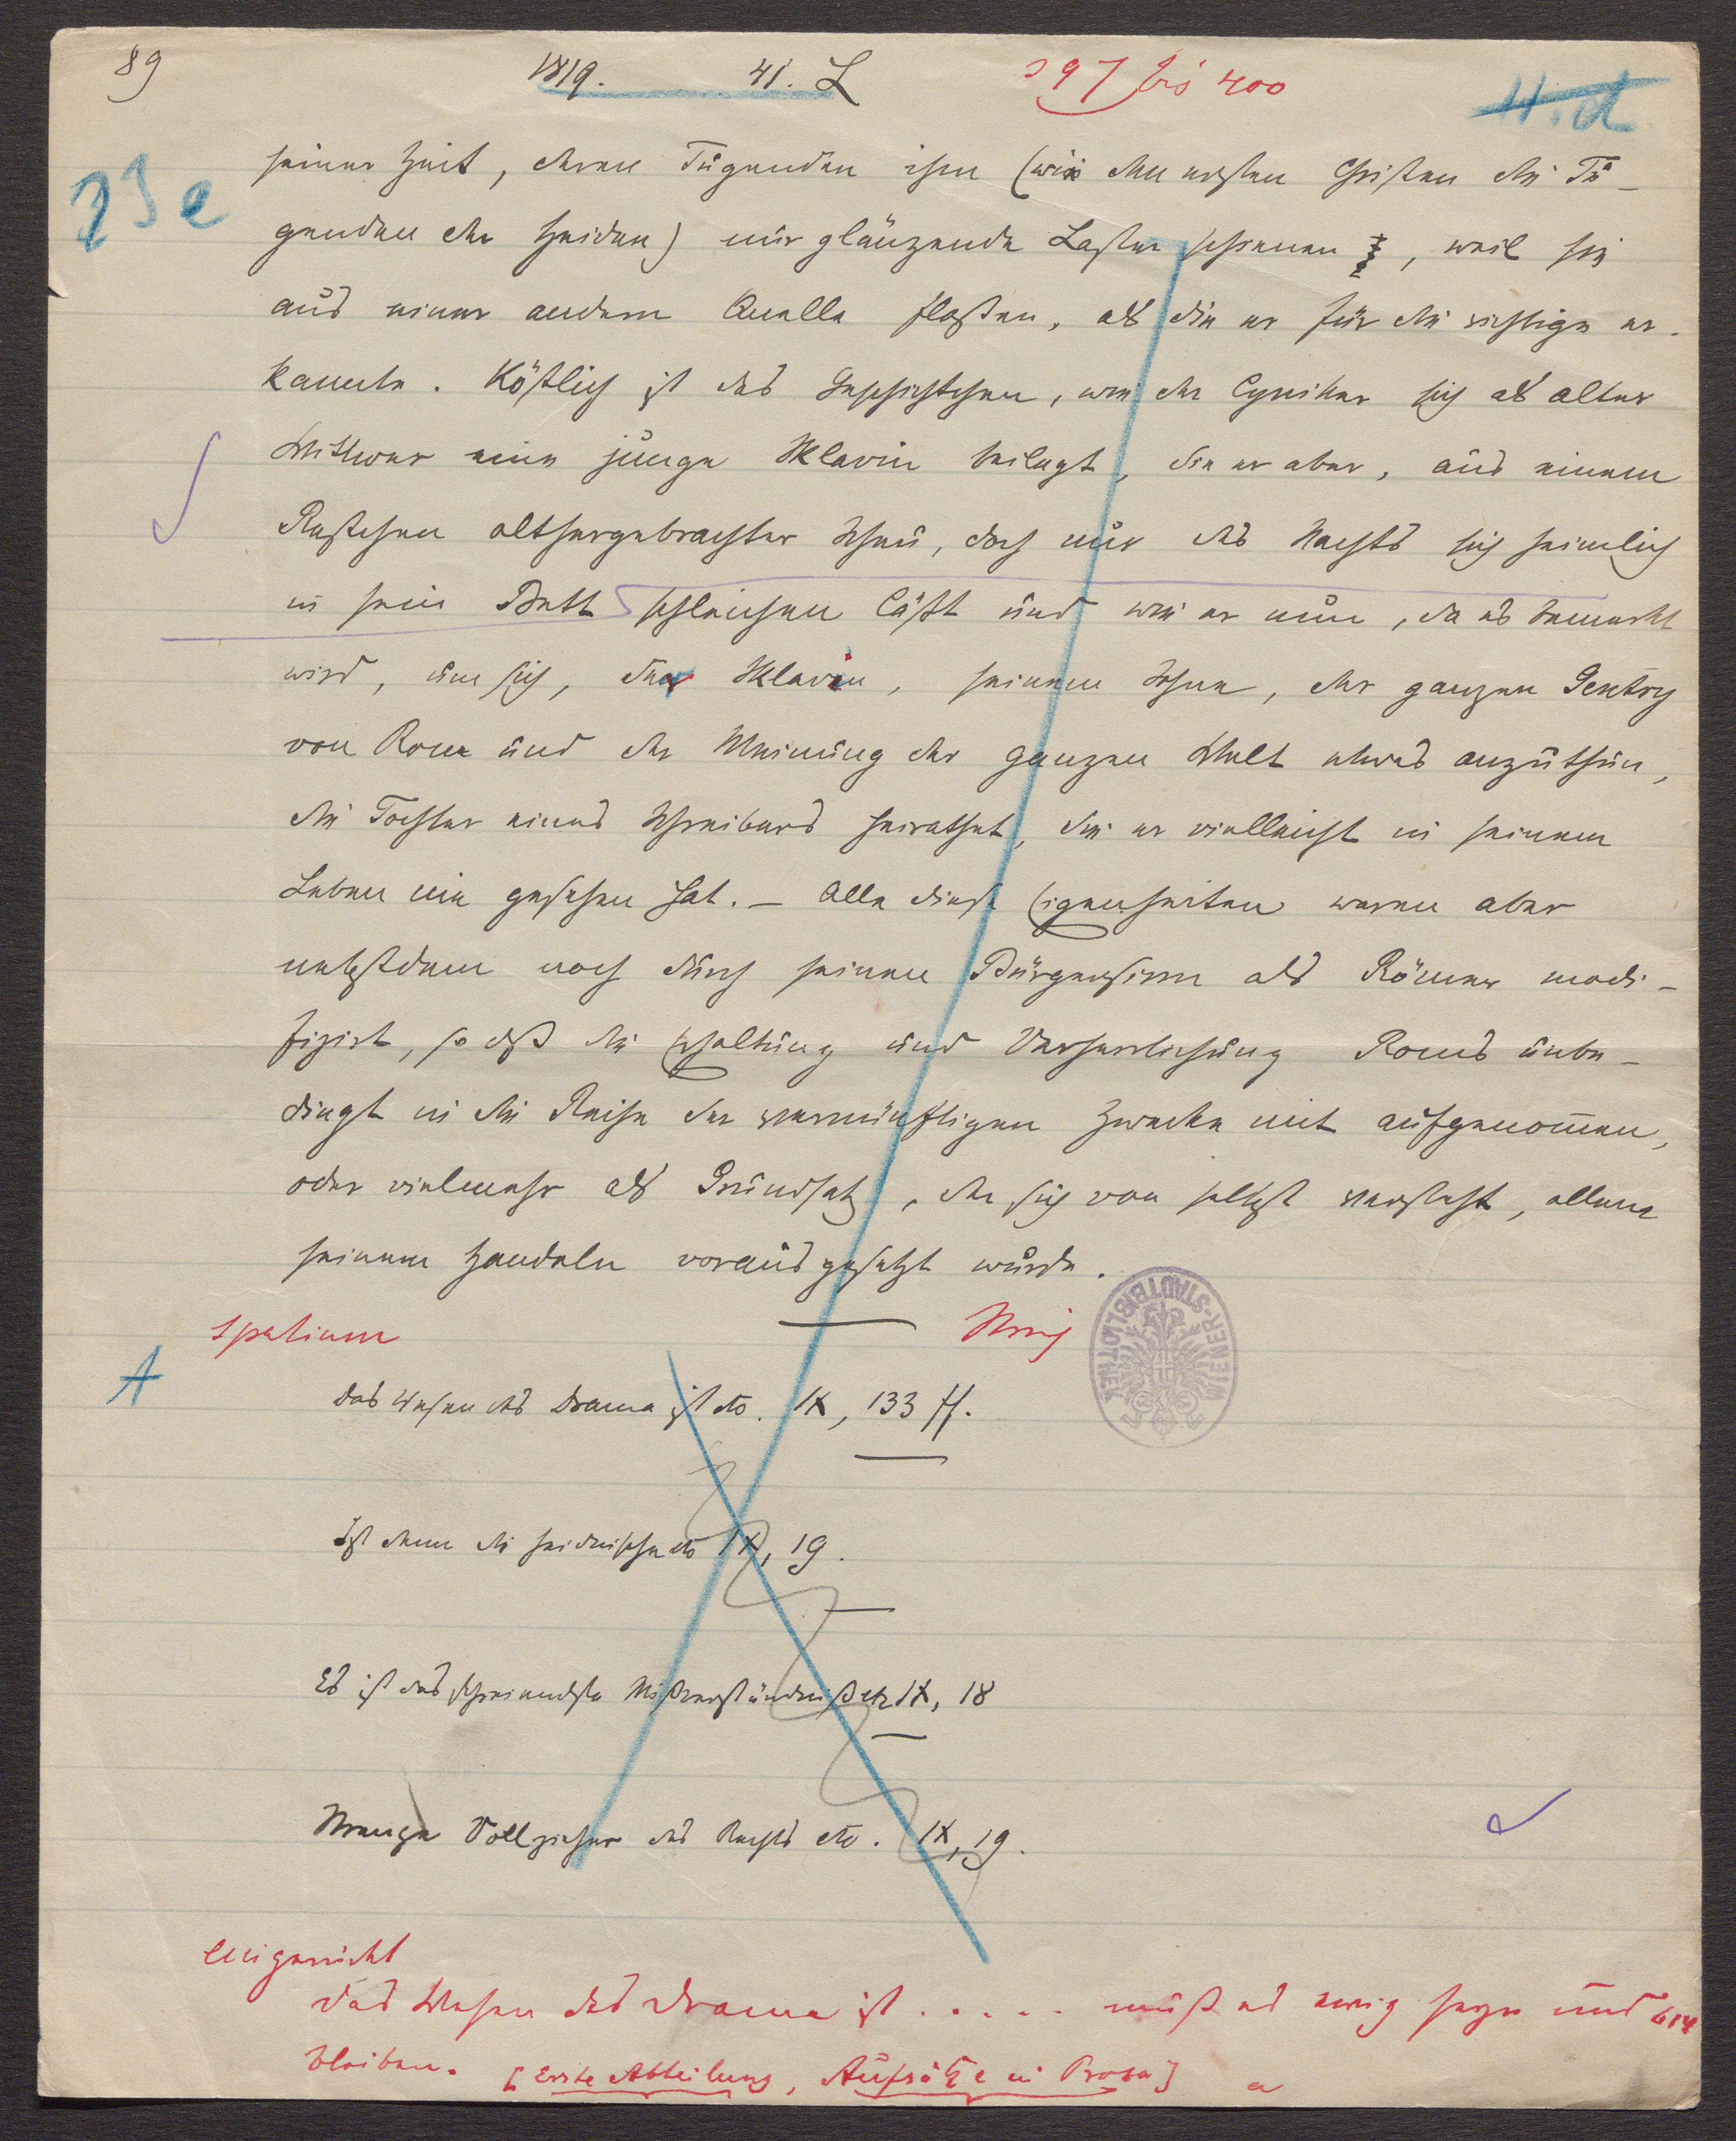 89
1819. 41. L
397 bis 400
11.d
23e
seiner Zeit, deren Tugenden ihm (wie den ersten Christen die Tu-
genden der Heiden) nur glänzende Laster schienen, weil sie
aus einer andern Quelle floßen, als die er für die richtige er-
kannte. Köstlich ist das Geschichtchen, wie der Cyniker sich als alter
Wittwer eine junge Sklavin beilegt, die er aber, aus einem
Restchen althergebrachter Scheu, doch nur des Nachts sich heimlich
in sein Bett schleichen läßt und wie er nun, da es bemerkt
wird, um sich, der Sklavin, seinem Sohne, der ganzen Gentry
von Rom und der Meinung der ganzen Welt etwas anzuthun,
die Tochter eines Schreibers heirathet, die er vielleicht in seinem
Leben nie gesehen hat. – Alle diese Eigenheiten waren aber
nebstdem noch durch seinen Bürgersinn als Römer modi-
fizirt, so daß die Erhaltung und Verherrlichung Roms unbe-
dingt in die Reihe der vernünftigen Zwecke mit aufgenommen,
oder vielmehr als Grundsatz, der sich von selbst versteht, allem
seinem Handeln vorausgesetzt wurde.
spatium
A
Das Wesen des Drama ist etc. IX, 133 ff.
WIENER-STADTBIBLIOTHEK
Ist denn die heidnische etc IX, 19.
Es ist das schreiendste Mißverständniß etc IX, 18
Strenge Vollzieher des Rechts etc. IX, 19.
eingerückt
Das Wesen des Drama ist ..... muß es ewig seyn und 614
bleiben. [Erste Abteilung, Aufsätze in Prosa] a